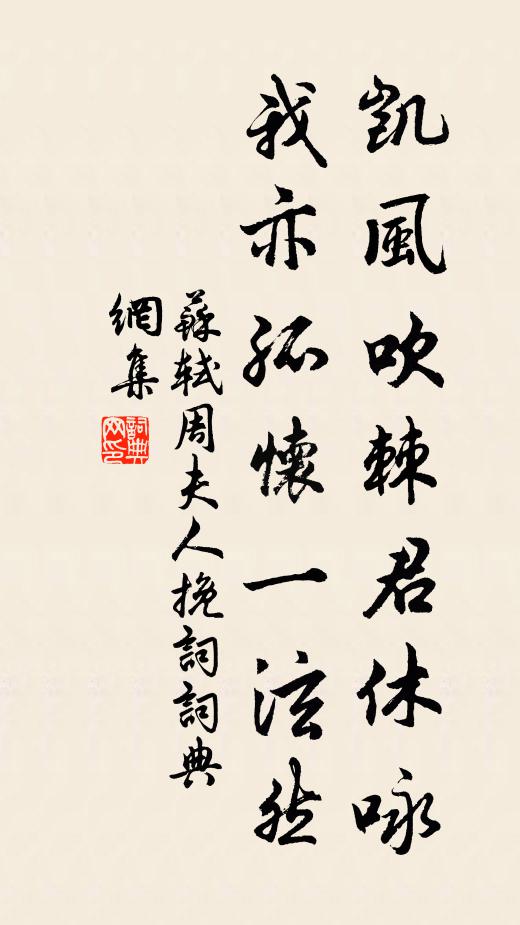 凱風吹棘君休咏
我亦孤懷一泫然
蘇軾周夫人挽詞詞典
網集
詞典
网印